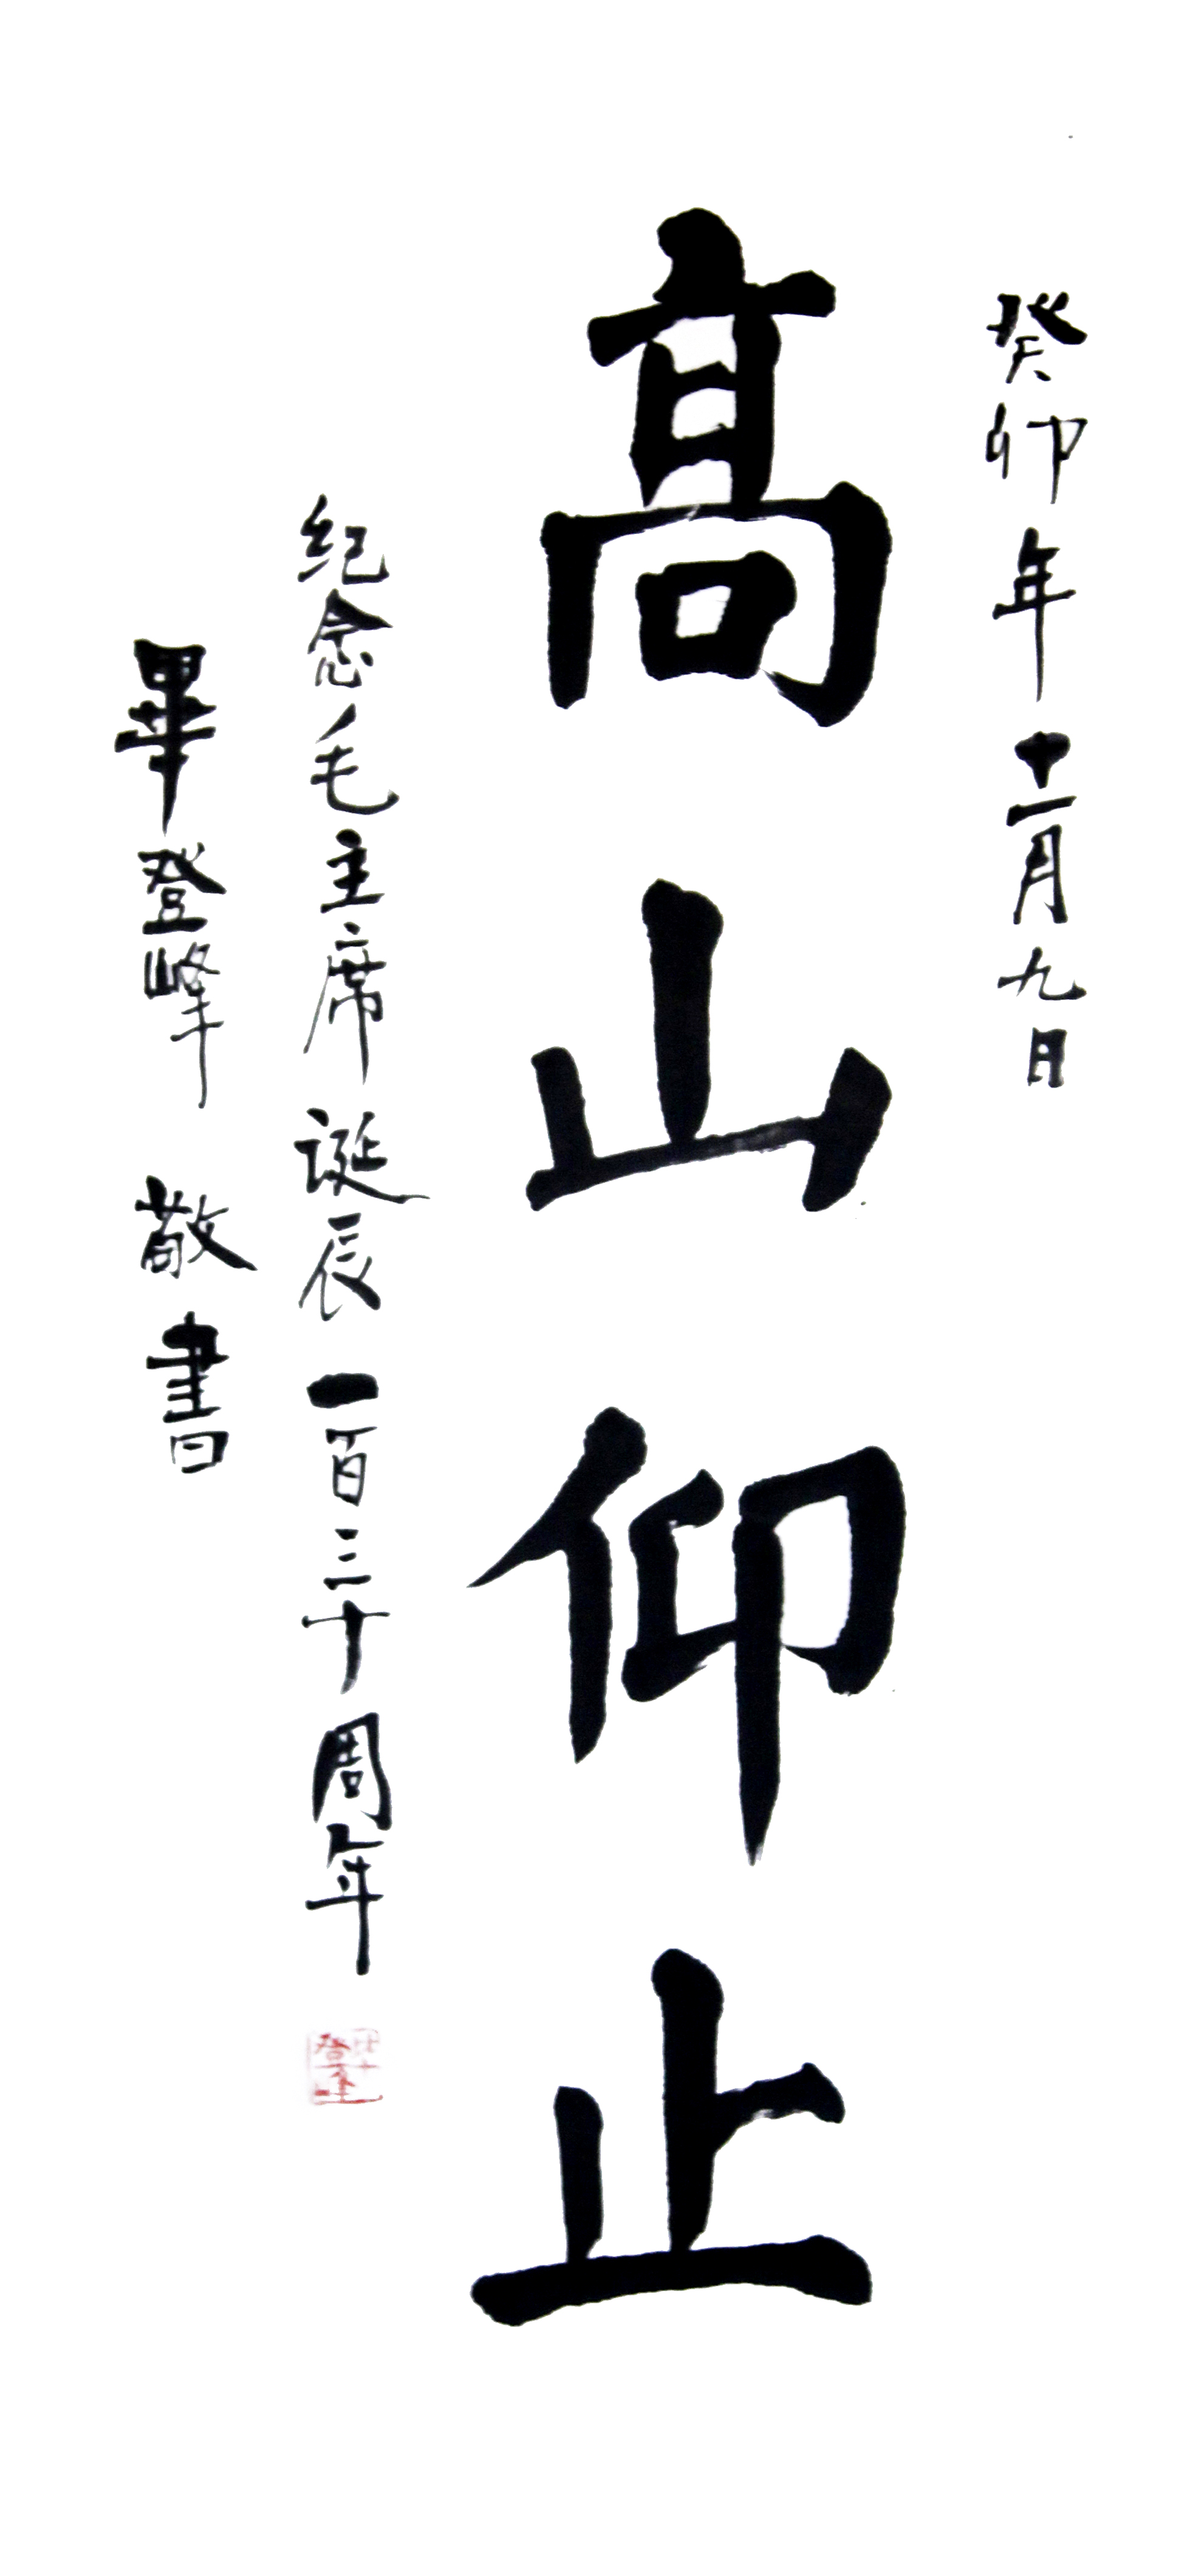 癸卯年十一月九日
髙山仰止
纪念毛主席诞辰一百三十周年
畢登峰敬書